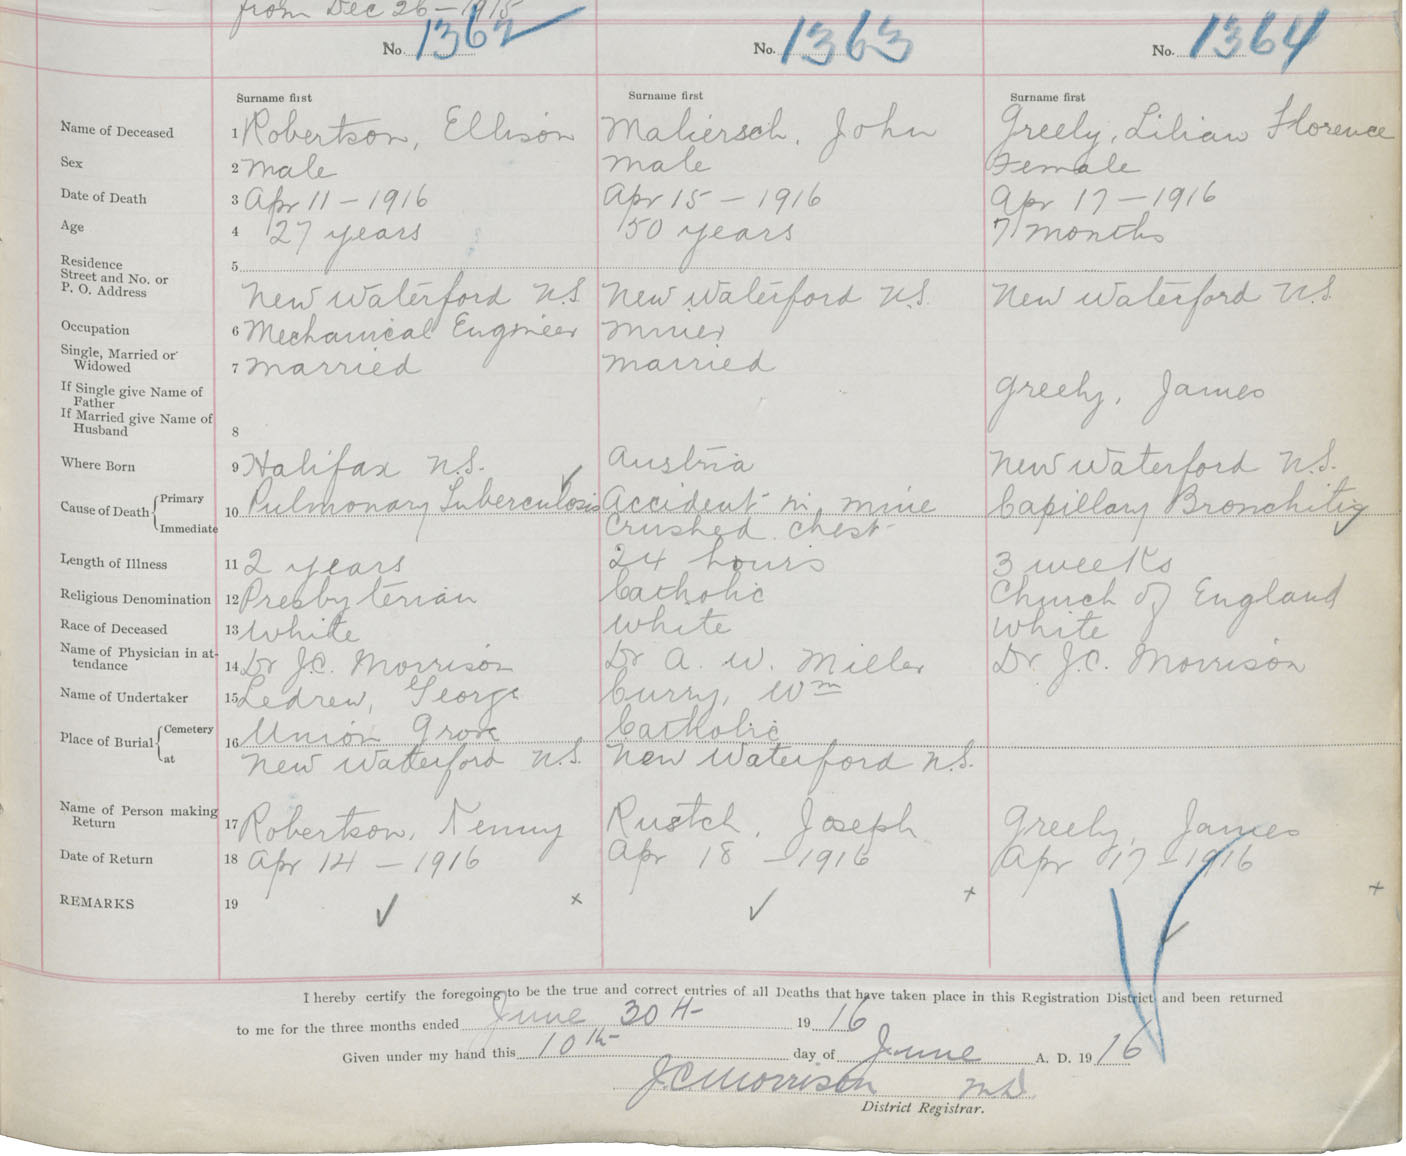 from Dec 26 - 1915
No. 1362 No. 1363 No. 1364
Surname first Surname first Surname first
Name of Deceased 1 Robertson, Ellison Maliersch, John Greely, Lilian Florence
Sex 2 Male Male Female
Date of Death 3 Apr 11 - 1916 Apr 15 - 1916 Apr 17 - 1916
Age 4 27 years 50 years 7 months
Residence
Street and No. or 5
P. O. Address New Waterford N.S. New Waterford N.S. New Waterford N.S.
Occupation 6 Mechanical Engineer Miner
Single, Married or
Widowed 7 Married Married
If Single give Name of
Father Greely, James
If Married give Name of
Husband 8
Where Born 9 Halifax N.S. Austria New Waterford N.S.
Cause of Death { Primary
Immediate 10 Pulmonary Tuberculosis Accident in mine Capillary Bronchitis
Crushed chest
Length of Illness 11 2 years 24 hours 3 weeks
Religious Denomination 12 Presbyterian Catholic Church of England
Race of Deceased 13 White White White
Name of Physician in at-
tendance 14 Dr J.C. Morrison Dr A. W. Miller Dr. J.C. Morrison
Name of Undertaker 15 Ledrew, George Curry, Wm
Place of Burial { Cemetery
at 16 Union Grove Catholic
New Waterford N.S. New Waterford N.S.
Name of Person making
Return 17 Robertson, Kenny Rustch, Joseph Greely, James
Date of Return 18 Apr 14 - 1916 Apr 18 - 1916 Apr 17 - 1916
REMARKS 19 ✓ x ✓ + ✓ +
I hereby certify the foregoing to be the true and correct entries of all Deaths that have taken place in this Registration District and been returned
to me for the three months ended June 30th 1916
Given under my hand this 10th day of June A. D. 1916
J.C. Morrison M.D.
District Registrar.